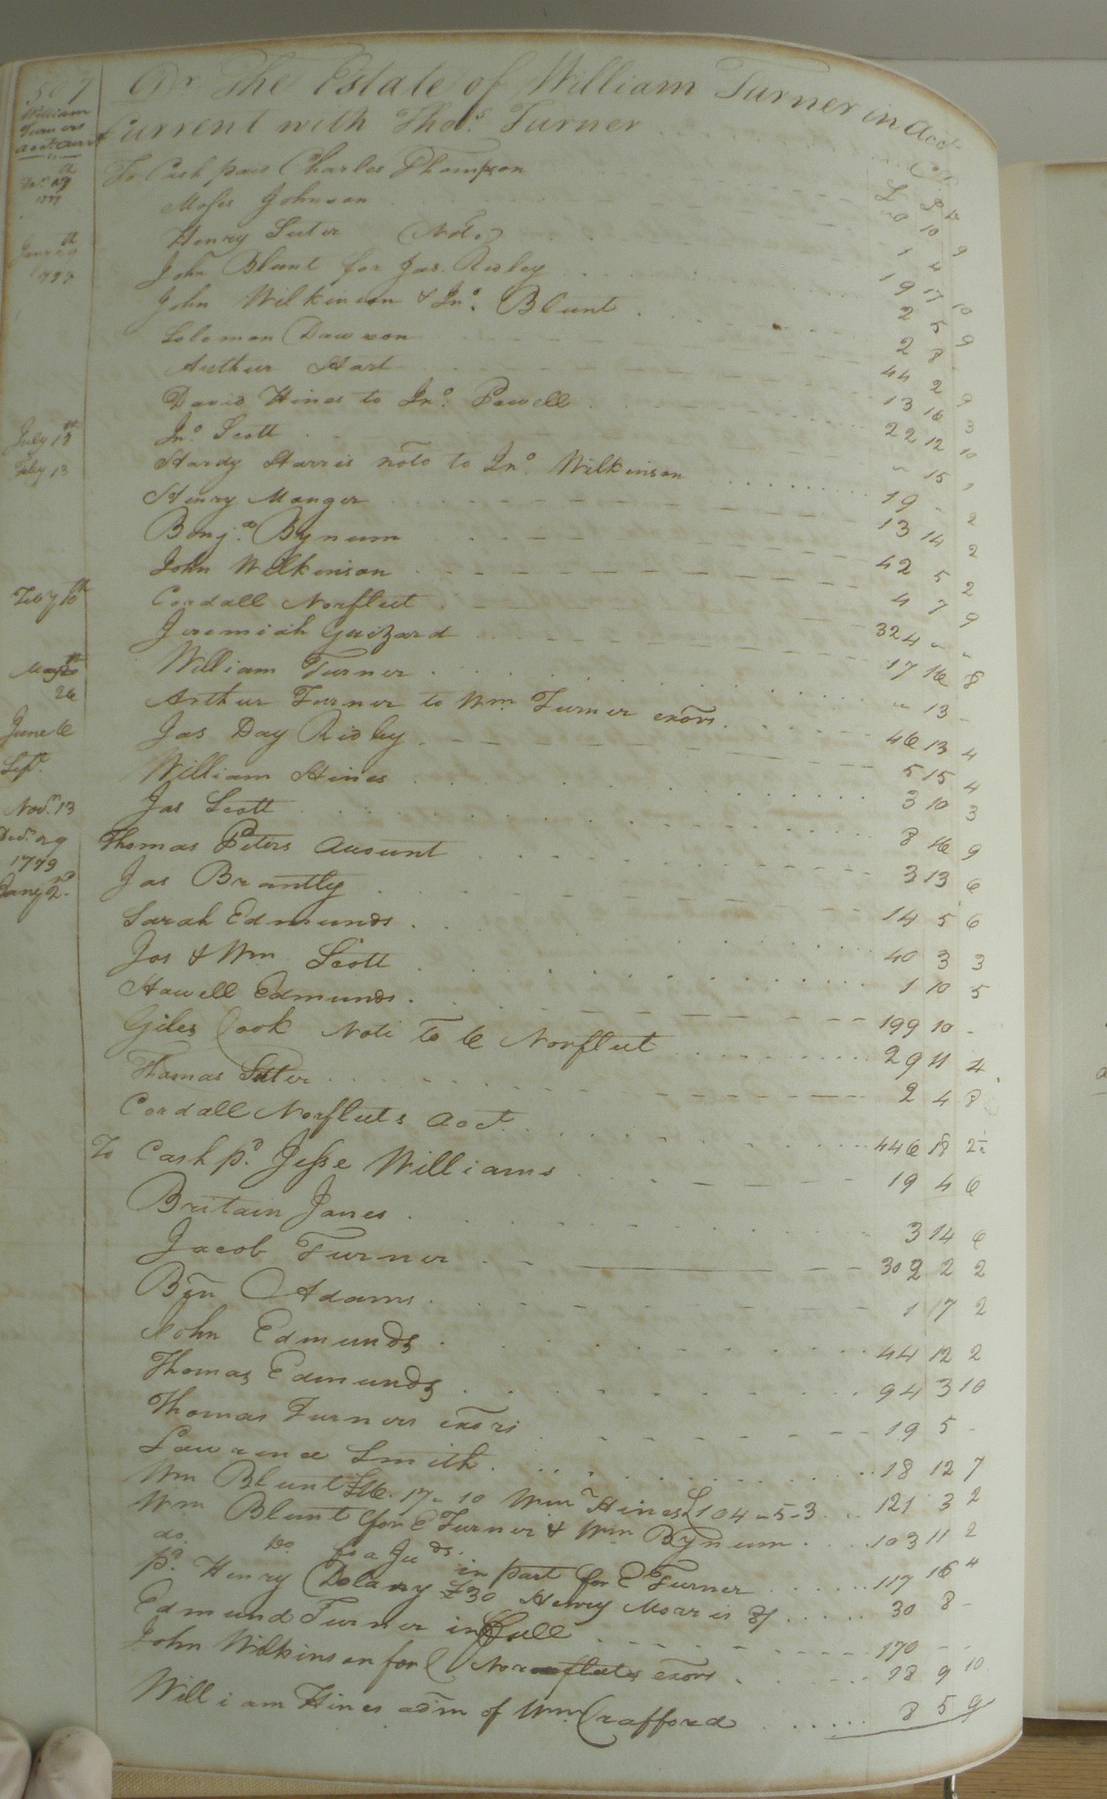 507
Dr. The Estate of William Turner in Acct
William
Turners
acct Curt
Current with Thos. Turner
To Cash paid Charles Thompson
1777
Moses Johnson
£ S D
Henry Suter (Note)
10 9
John Blunt for Jas. Ridley
1 4
John Wilkinson & Jno. Blunt
19 17 10
Soloman Dawson
2 5 9
Arthur Hart
2 8
David Hines to Jno. Powell
44 2 9
July 13th
Jno. Scott
13 16 3
July 13
Hardy Harris note to Jno. Wilkinson
22 12 10
Henry Manger
" 15
Benja. Bynum
19 - 2
John Wilkinson
13 14 2
Feby 10th
Cordall Norfleet
42 5 2
Jeremiah Guizard
4 7 9
William Turner
324 " "
May
26
Arthur Turner to Wm. Turner exors
17 16 8
June 6
Jas Day Ridley
" 13 -
Sept.
William Hines
46 13 4
Novr. 13
Jas Scott
5 15 4
Decr. 29
1779
Thomas Peters Account
3 10 3
Jany 2d.
Jas Brantly
8 16 9
Sarah Edmunds
3 13 6
Jos & Wm Scott
14 5 6
Howell Edmunds
40 3 3
Giles Cook Note to C Norfleet
1 10 5
Thomas Suter
199 10 -
Cordall Norfleets acct
29 11 4
To Cash pd. Jesse Williams
2 4 8
Britain Jones
446 18 2
Jacob Turner
19 4 6
Bn Adams
3 14 6
John Edmunds
302 2 2
Thomas Edmunds
1 17 2
Thomas Turners exors
44 12 2
Lawrence Smith
94 3 10
Wm Blunt £16. 17 - 10 Wm Hines £104 - 5 - 3
19 5 -
Wm Blunt for E Turner & Wm Bynum
18 12 7
do. Do for a Juds. in part for E Turner
121 3 2
pd. Henry Delany £30 Henry Morris 8/
103 11 2
Edmund Turner in full
117 16 4
John Wilkinson for C Norfleets exors
30 8 -
William Hines adm of Wm Crafford
170 - -
28 9 10
8 5 9